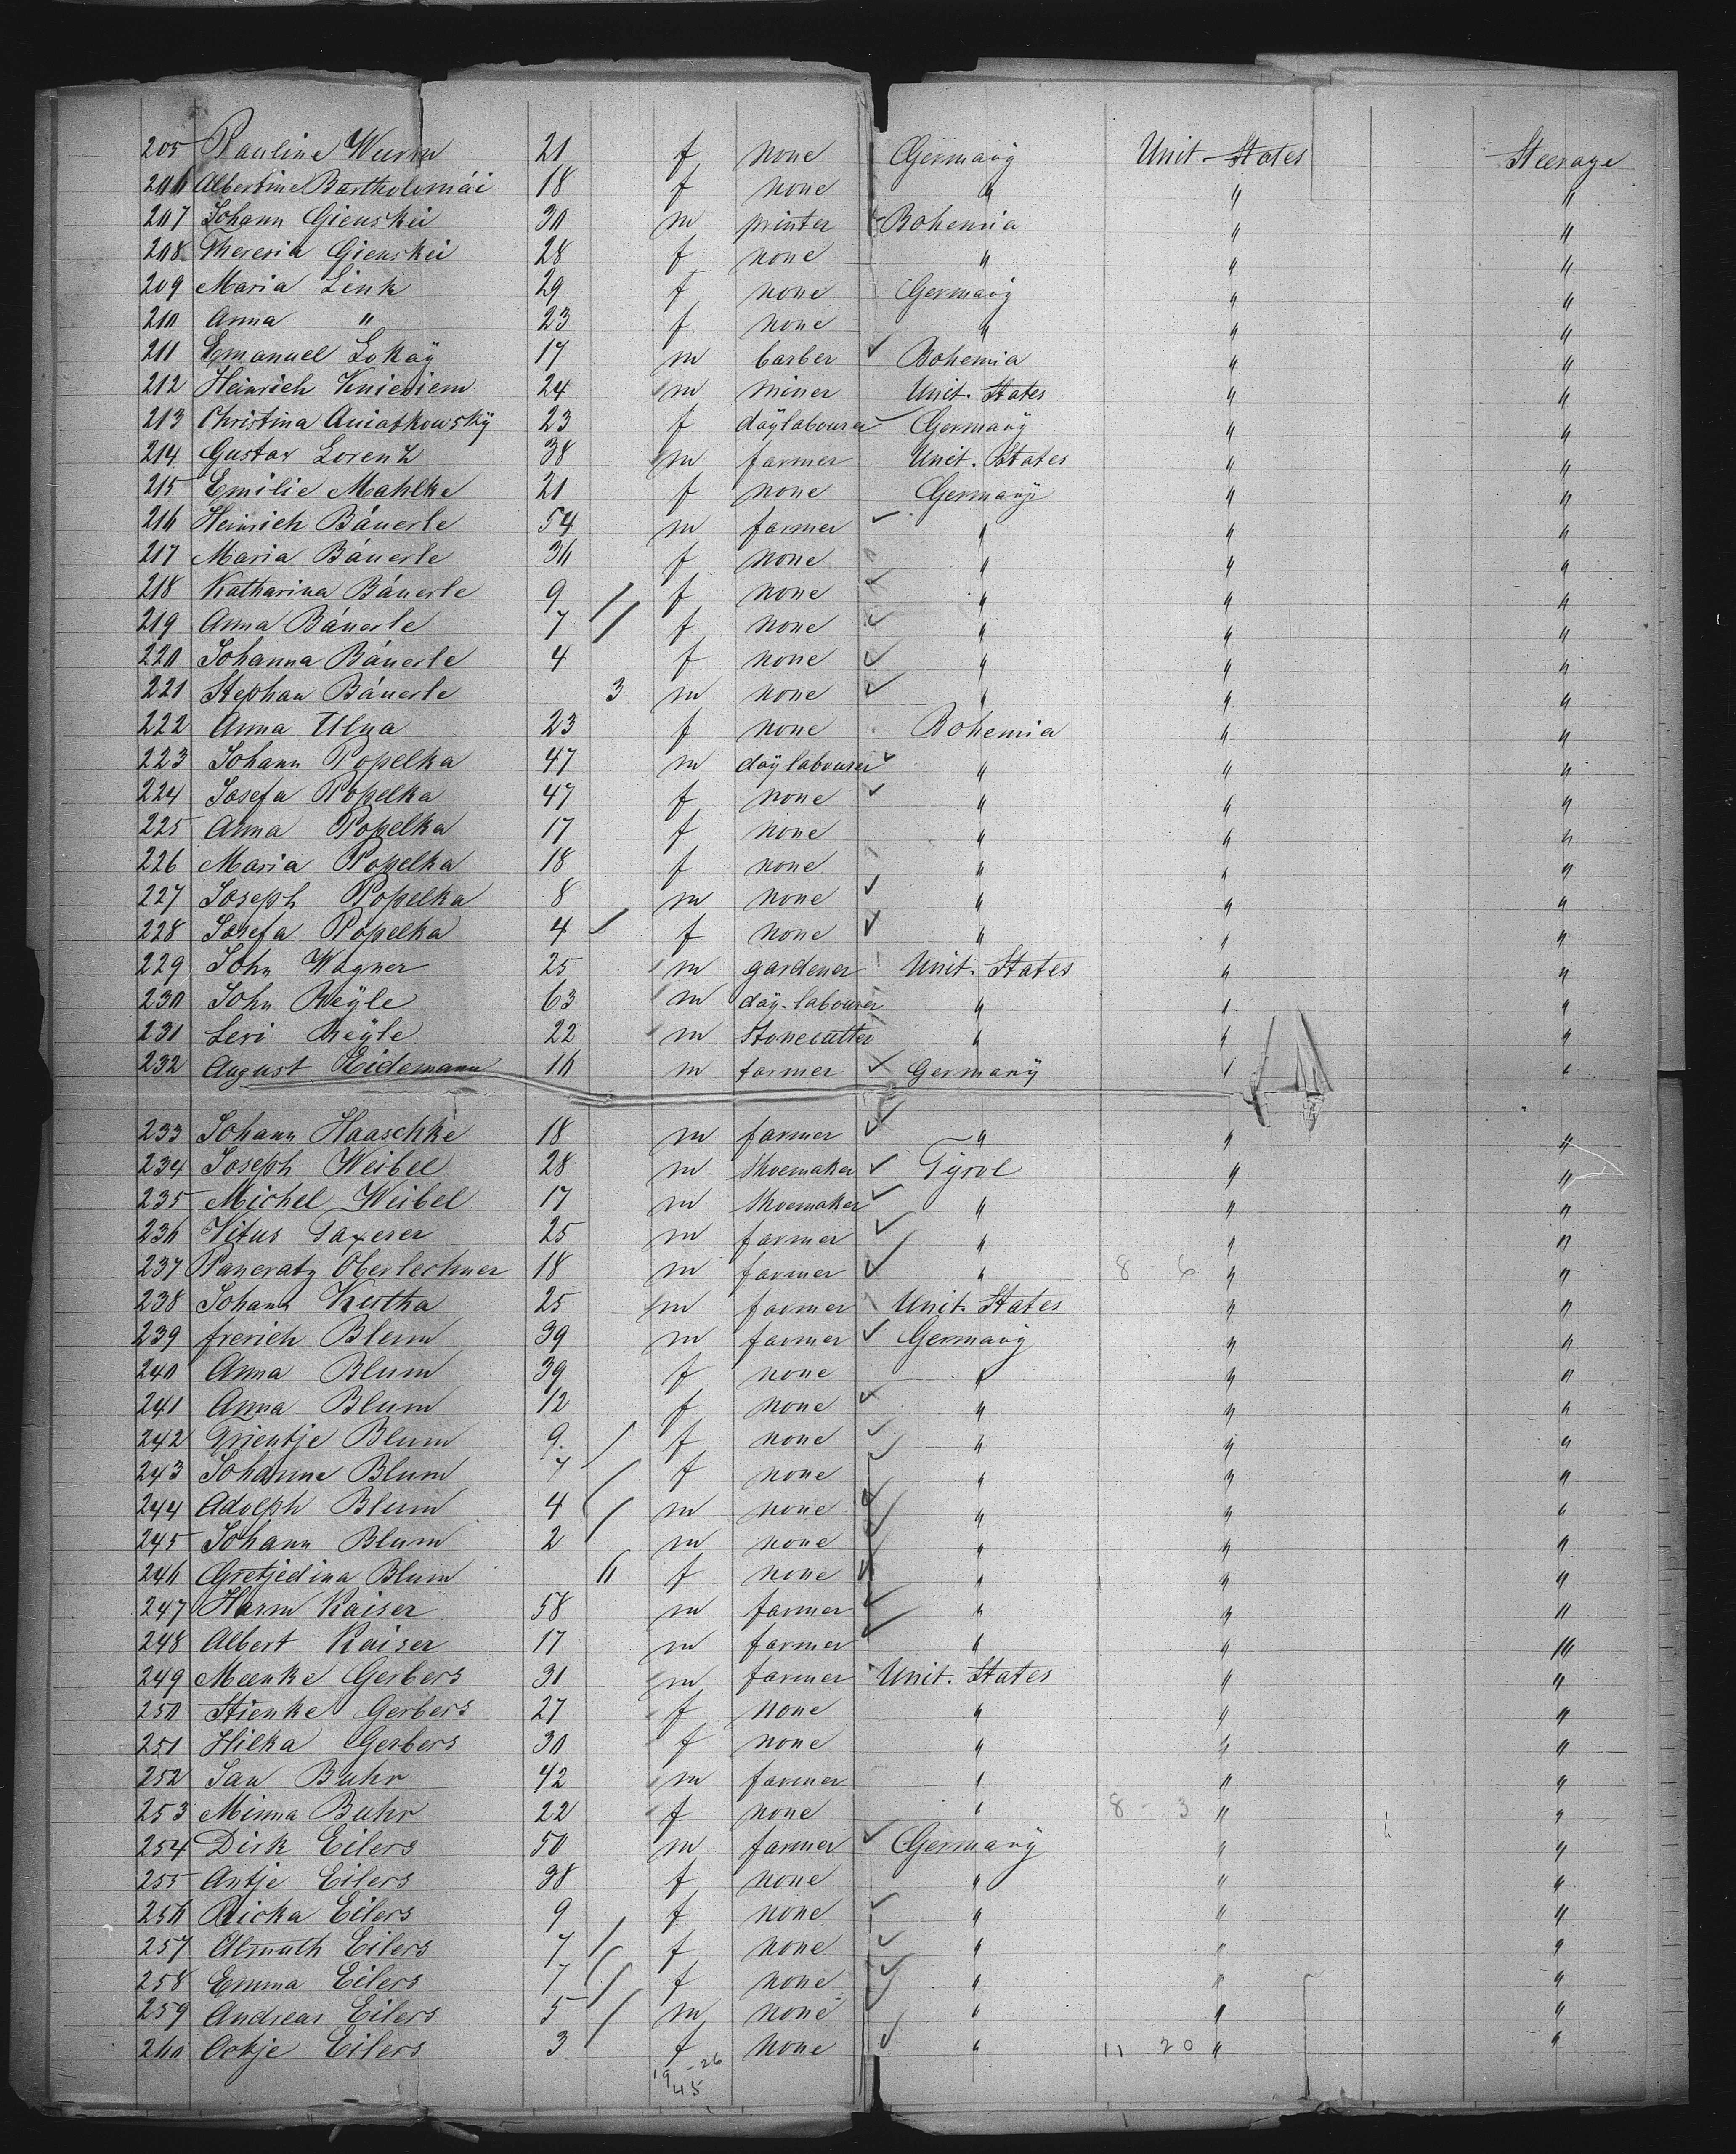 205 Pauline Wurm 21 f none Germany Unit States Steerage
206 Albertine Bartholomái 18 f none " " "
207 Johann Gienskei 30 m printer Bohemia " "
208 Theresia Gienskei 28 f none " " "
209 Maria Link 29 f none Germany " "
210 Anna " 23 f none " " "
211 Emanuel Lokaÿ 17 m barber Bohemia " "
212 Heinrich Knieriem 24 m miner Unit. States " "
213 Christina Aniatkowskÿ 23 f daÿlabourer Germanÿ " "
214 Gustav Lorenz 38 m farmer Unit. States " "
215 Emilie Mahlke 21 f none Germanÿ " "
216 Heinrich Báuerle 54 m farmer " " "
217 Maria Báuerle 36 f none " " "
218 Katharina Báuerle 9 f none " " "
219 Anna Báuerle 7 f none " " "
220 Johanna Báuerle 4 f none " " "
221 Stephan Báuerle 3 m none " " "
222 Anna Ulya 23 f none Bohemia " "
223 Johann Popelka 47 m daÿlabourer " " "
224 Josefa Popelka 47 f none " " "
225 Anna Popelka 17 f none " " "
226 Maria Popelka 18 f none " " "
227 Joseph Popelka 8 m none " " "
228 Josefa Popelka 4 f none " " "
229 John Wagner 25 m gardener Unit. States " "
230 John Reÿle 63 m daÿ-labourer " " "
231 Levi Reÿle 22 m Stonecutter " " "
232 August Eidemann 16 m farmer Germanÿ " "
233 Johann Haaschke 18 m farmer " " "
234 Joseph Weibel 28 m Shoemaker Tÿrol " "
235 Michel Weibel 17 m Shoemaker " " "
236 Vitus Taxerer 25 m farmer " " "
237 Pancratz Oberlechner 18 m farmer " 8 - 6 " "
238 Johann Kutha 25 m farmer Unit. States " "
239 frerich Blum 39 m farmer Germanÿ " "
240 Anna Blum 39 f none " " "
241 Anna Blum 12 f none " " "
242 Trientje Blum 9. f none " " "
243 Johanna Blum 7 f none " " "
244 Adolph Blum 4 m none " " "
245 Johann Blum 2 m none " " "
246 Gretjedina Blum 6 f none " " "
247 Harm Kaiser 58 m farmer " " "
248 Albert Kaiser 17 m farmer " " "
249 Meenke Gerbers 31 m farmer Unit. States " "
250 Stienke Gerbers 27 f none " " "
251 Hilka Gerbers 30 f none " " "
252 Jan Buhr 42 m farmer " " "
253 Minna Buhr 22 f none " 8 - 3 " "
254 Dirk Eilers 50 m farmer Germanÿ " "
255 Antje Eilers 38 f none " " "
256 Ricka Eilers 9 f none " " "
257 Almuth Eilers 7 f none " " "
258 Emma Eilers 7 f none " " "
259 Andreas Eilers 5 m none " " "
260 Ockje Eilers 3 f none " 11 20 " "
19 - 26
45